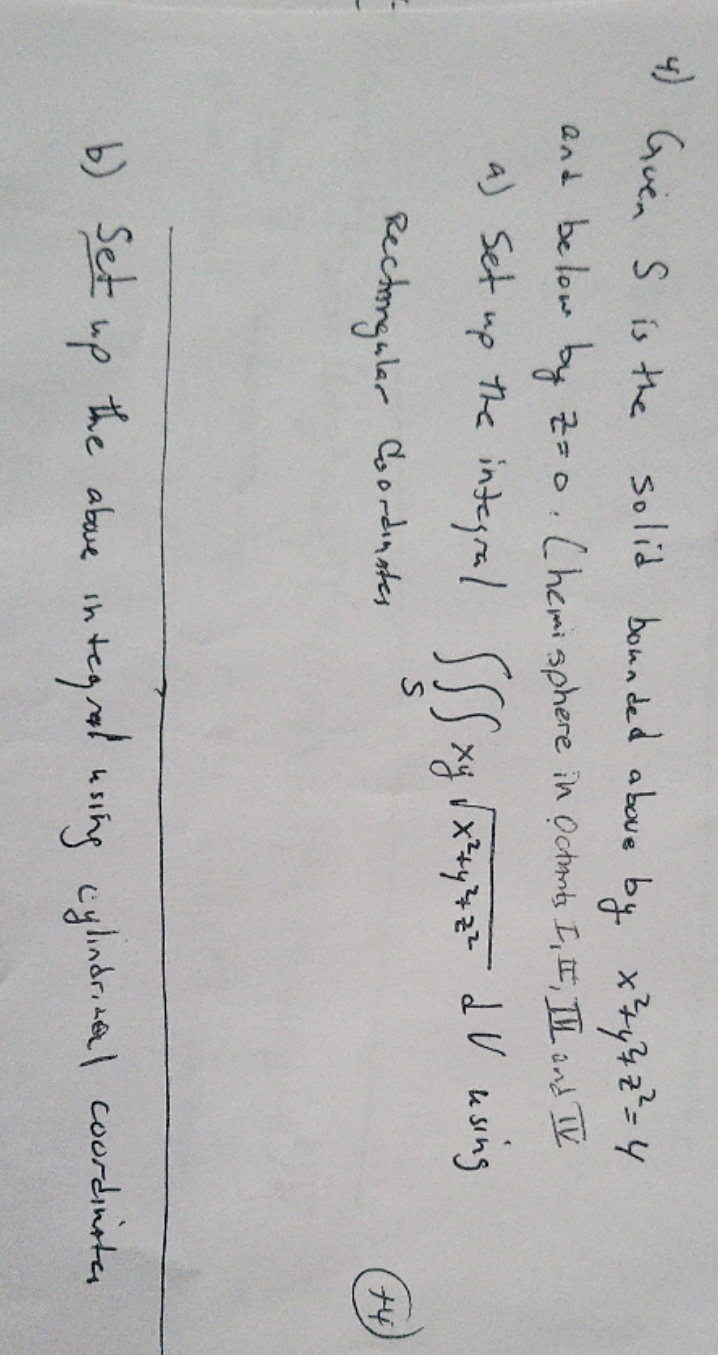 4) Given S is the solid bounded above by x²+y²+z²=4
and below by z=0. (hemisphere in Octants I, II, III and IV
a) Set up the integral ∭_S xy √(x²+y²+z²) dV using
Rectangular Coordinates
+4
b) Set up the above integral using cylindrical coordinates